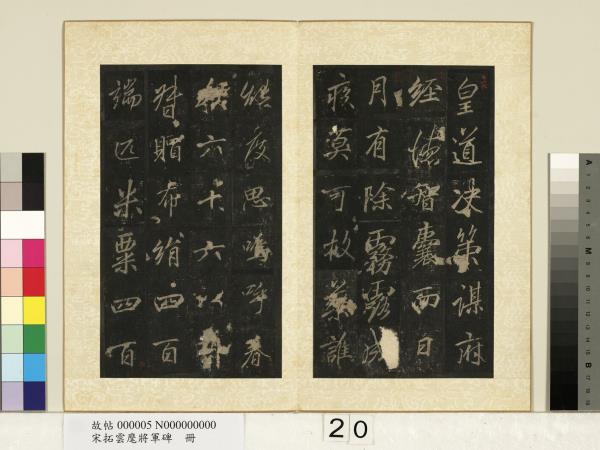 皇道決策謀府
經憤智囊而日
月有除霧露成
疾莫可救藥誰
思嗚呼春
六十六以
賵布絹四百
端匹米粟四百
故帖 000005 N000000000
宋拓雲麾將軍碑 冊
20